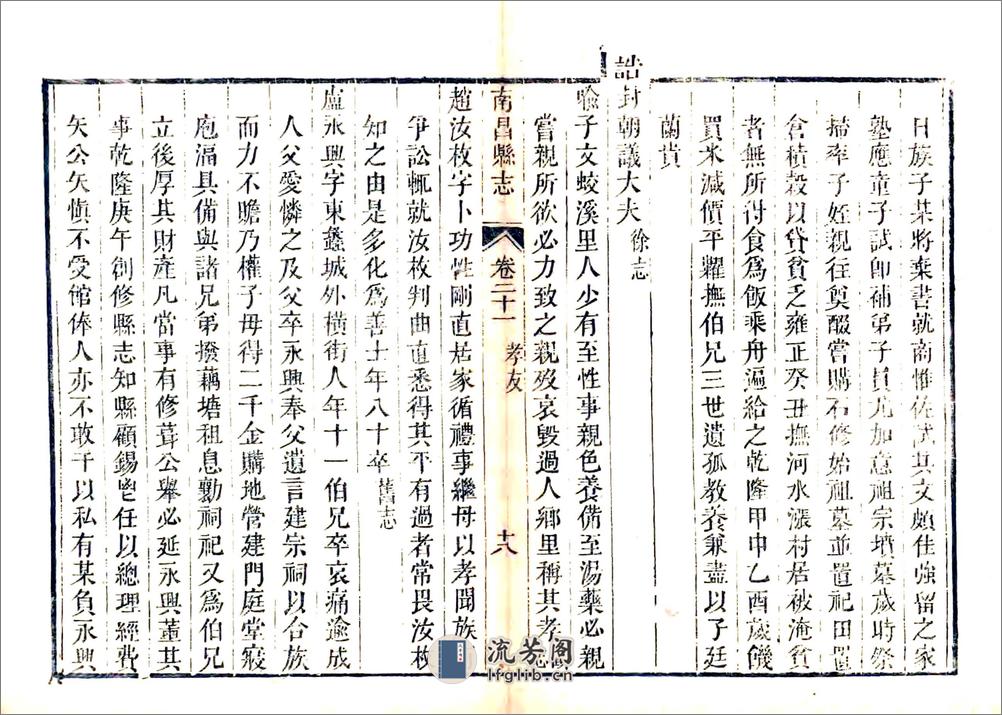 日族子某將棄書就商惟佐試其文頗佳強留之家
塾應童子試卽補弟子員尤加意祖宗墳墓歲時祭
掃率子姪親往奠醊嘗購石修始祖墓並置祀田置
倉積穀以貸貧乏雍正癸丑撫河水漲村居被淹貧
者無所得食爲飯乘舟遍給之乾隆甲申乙酉歲饑
買米減價平糶撫伯兄三世遺孤教養兼盡以子廷
蘭貴
誥封朝議大夫 徐志
喻子文蛟溪里人少有至性事親色養備至湯藥必親
嘗親所欲必力致之親歿哀毀過人鄉里稱其孝
南昌縣志 卷二十一 孝友 十八
趙汝枚字卜功性剛直居家循禮事繼母以孝聞族
爭訟輒就汝枚判曲直悉得其平有過者常畏汝枚
知之由是多化爲善士年八十卒 舊志
盧永興字東蠡城外橫街人年十一伯兄卒哀痛逾成
人父愛憐之及父卒永興奉父遺言建宗祠以合族
而力不贍乃權子母得二千金購地營建門庭堂寢
庖湢具備與諸兄弟撥藕塘租息勷祠祀又爲伯兄
立後厚其財產凡當事有修葺公舉必延永興董其
事乾隆庚午創修縣志知縣顧錫鬯任以總理經費
矢公矢愼不受館俸人亦不敢干以私有某負永興
流芳阁
lfglib.cn